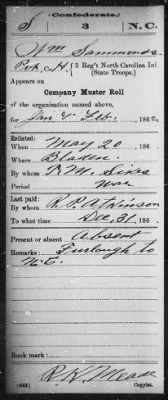 (Confederate.)
S 3 N.C.
Wm Sammonds
Pvt, Co. H, 3 Reg't North Carolina Inf.
(State Troops.)
Appears on
Company Muster Roll
of the organization named above,
for Jan & Feb., 186
Enlisted:
When May 20, 186
Where Bladen
By R. M. Sikes
Period War
Last paid:
By R. P. Atkinson
To what time Dec. 31, 186
Present or absent Absent
Remarks: Furlough to
N.C.
Book mark:
(642) R. H. Meade
Copyist.